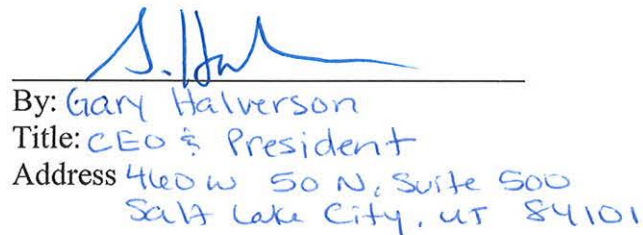 G. Hal
By: Gary Halverson
Title: CEO & President
Address 460 W 50 N, Suite 500
Salt Lake City, UT 84101